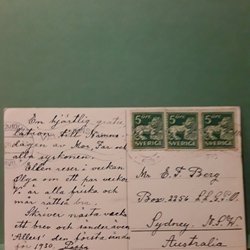 En hjärtlig gratu-
lation till Namns-
dagen av Mor, Far och
alla syskonen.
Ellen reser i veckan
Olga om ett par veckor
Jo är alla friska och
mår rätt bra.
Skriver nästa vecka
ett brev och sänder även
"Allers" den första
1930.
5 ÖRE
SVERIGE
5 ÖRE
SVERIGE
5 ÖRE
SVERIGE
Mr E. F. Berg
Box. 2256
Sydney. N.S.W.
Australia